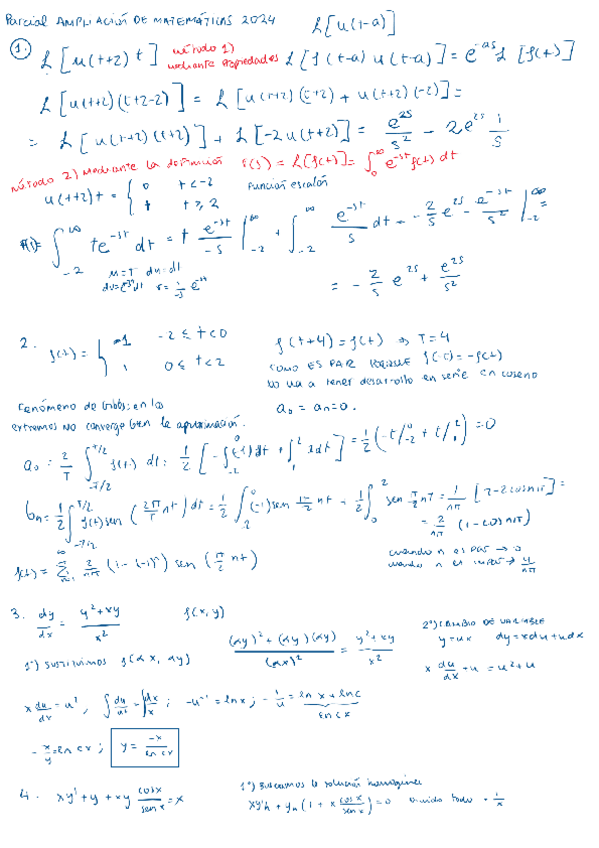 Parcial AMPLIACIÓN DE MATEMÁTICAS 2024
L[u(t-a)]
1. L[u(t+2) t] método 1) mediante propiedades L[f(t-a) u(t-a)] = e^{-as} L[f(t)]
L[u(t+2)(t+2-2)] = L[u(t+2)(t+2) + u(t+2)(-2)] =
= L[u(t+2)(t+2)] + L[-2u(t+2)] = e^{2s}/s^2 - 2e^{2s} 1/s
método 2) Mediante la definición F(s) = L[f(t)] = ∫_0^∞ e^{-st} f(t) dt
u(t+2)t = { 0 t<-2 Función escalón
t t≥2
F(s) = ∫_{-2}^∞ t e^{-st} dt = t e^{-st}/-s |_{-2}^∞ + ∫_{-2}^∞ e^{-st}/s dt = - 2/s e^{2s} - e^{-st}/s^2 |_{-2}^∞ =
u=t du=dt
dv=e^{-st}dt v=1/-s e^{-st}
= - 2/s e^{2s} + e^{2s}/s^2
2. f(t) = { -1 -2≤t<0 f(t+4) = f(t) ⇒ T=4
1 0≤t<2
COMO ES PAR PORQUE f(-t) = -f(t)
NO VA A TENER desarrollo en serie en coseno
Fenómeno de Gibbs: en los
extremos no converge bien la aproximación.
a_0 = a_n = 0.
a_0 = 2/T ∫_{-T/2}^{T/2} f(t) dt = 1/2 [-∫_{-2}^0 (-1) dt + ∫_1^2 1dt] = 1/2 (-t/_{-2}^0 + t/_1^2) = 0
b_n = 1/2 ∫_{-T/2}^{T/2} f(t) sen (2π/T nt) dt = 1/2 ∫_{-2}^0 (-1) sen π/2 nt + 1/2 ∫_0^2 sen π/2 nt = 1/nπ [2-2cosnπ] =
= 2/nπ (1-cosnπ)
cuando n es par → 0
cuando n es impar → 4/nπ
f(t) = Σ^∞ 2/nπ (1-(-1)^n) sen (π/2 nt)
3. dy/dx = y^2+xy/x^2 f(x,y)
1º) Sustituimos f(αx, αy)
(αy)^2 + (αy)(αy)/(αx)^2 = y^2+xy/x^2
2º) CAMBIO DE VARIABLE
y=ux dy=xdu+udx
x du/dx + u = u^2+u
x du/dx = u^2, ∫du/u^2 = ∫dx/x ; -u^{-1} = ln x ; - 1/u = ln x + ln c
ln c x
- x/y = ln cx ; y = -x/ln cx
4. xy' + y + xy cosx/senx = x
1º) Buscamos la solución homogénea
xy'h + yh (1 + x cosx/senx) = 0 Divido todo ÷ 1/x